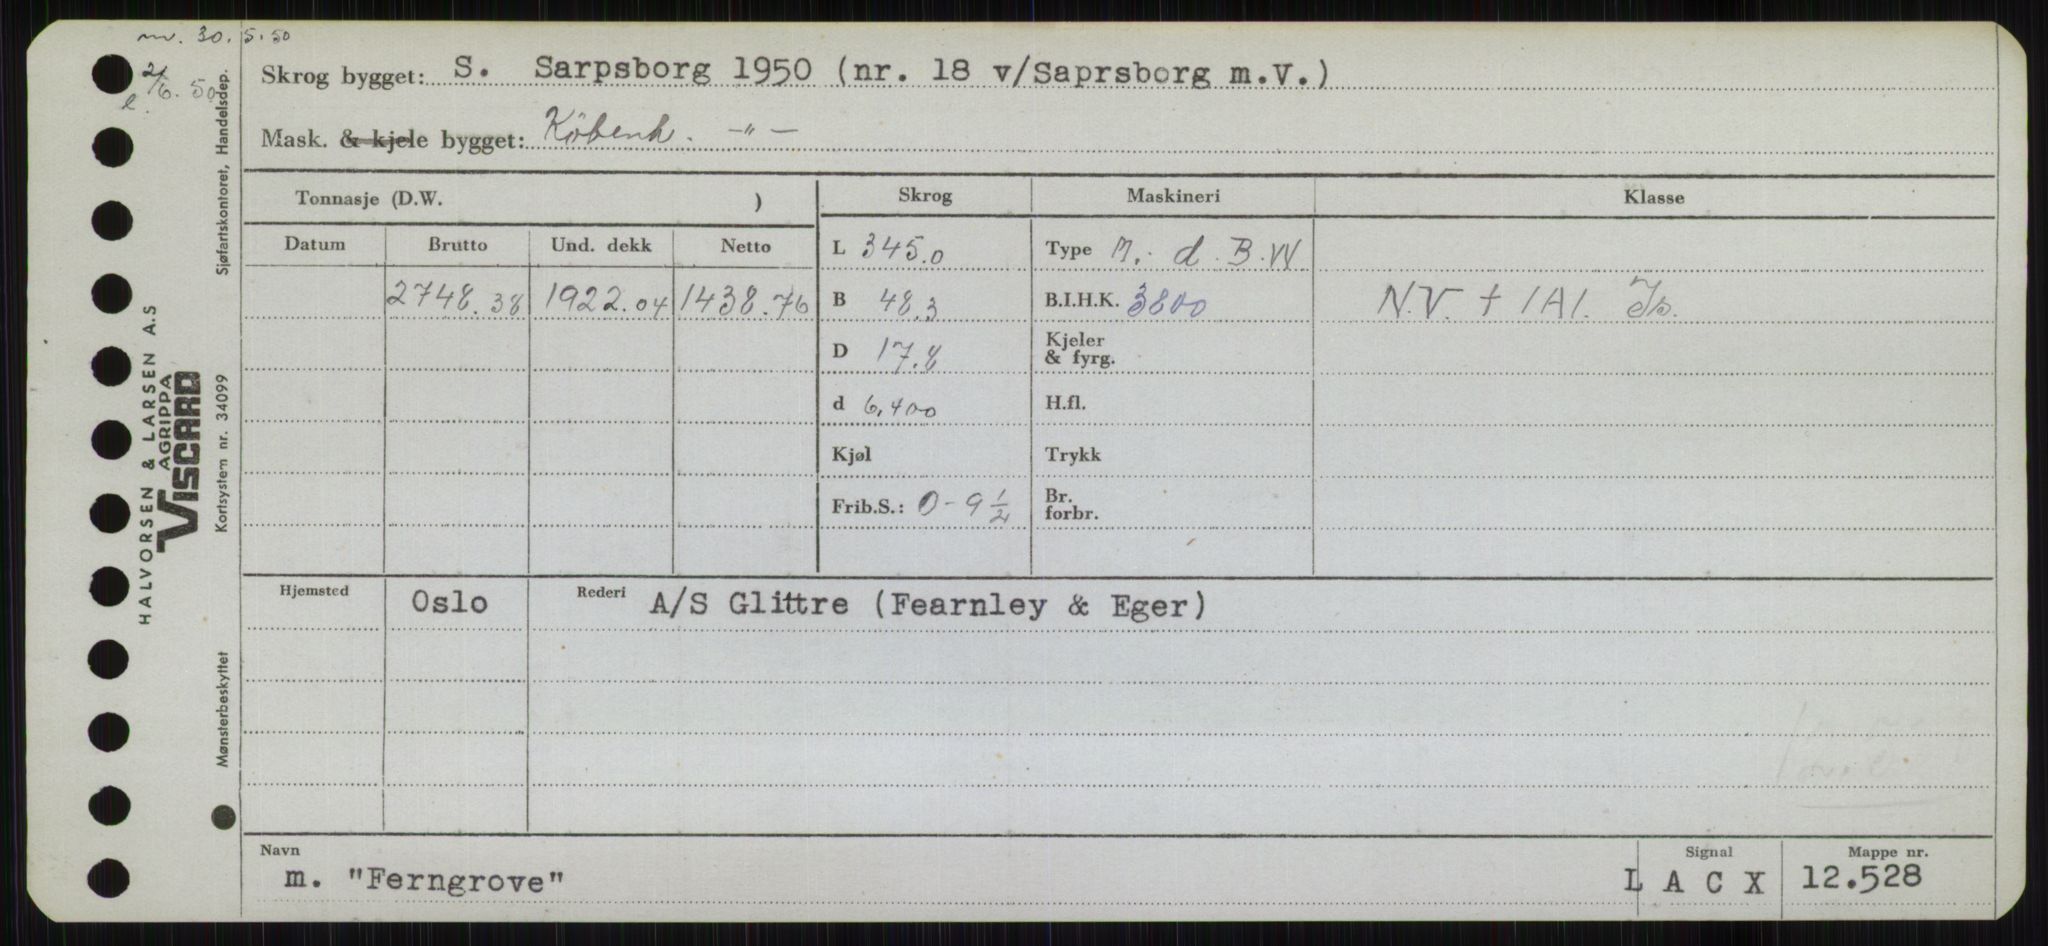 nv. 30.5.50
2/6. 50
e.
Skrog bygget: S. Sarpsborg 1950 (nr. 18 v/Saprsborg m.V.)
Mask. & kjele bygget: Köbenh. -"-
Tonnasje (D.W. )
Skrog Maskineri Klasse
Datum Brutto Und. dekk Netto
L 345.0 Type M. d. B.W
2748.38 1922.04 1438.76 B 48.3 B.I.H.K. 3800 N.V. + 1A1. Is.
D 17.8 Kjeler & fyrg.
d 6,400 H.fl.
Kjøl Trykk
Frib.S.: 0-9 1/2 Br. forbr.
Hjemsted Oslo Rederi A/S Glittre (Fearnley & Eger)
Navn Signal Mappe nr.
m. "Ferngrove" L A C X 12.528
HALVORSEN & LARSEN A.S
AGRIPPA
VISCARD
Sjøfartskontoret, Handelsdep.
Kortsystem nr. 34099
Mønsterbeskyttet